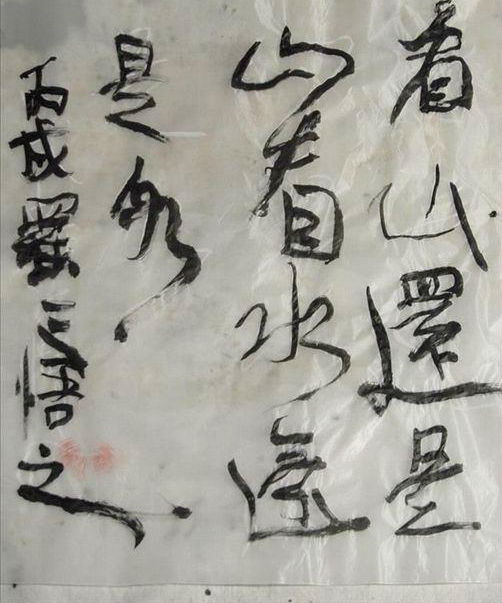 看山還是
山看水還
是水
丙戌羅三悟之